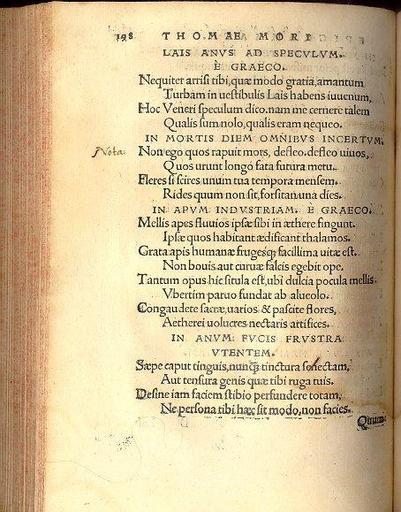 198 THOMAE MORI
LAIS ANVS AD SPECVLVM.
E GRAECO.
Nequiter arrisi tibi, quæ modo gratia, amantum
Turbam in uestibulis Lais habens iuuenum,
Hoc Veneri speculum dico. nam me cernere talem
Qualis sum nolo, qualis eram nequeo.
IN MORTIS DIEM OMNIBVS INCERTVM.
Nota
Non ego quos rapuit mors, defleo. defleo uiuos,
Quos urunt longo fata futura metu.
Fleres si scires unum tua tempora mensem.
Rides quum non sit forsitan una dies.
IN APVM INDVSTRIAM. E GRAECO.
Mellis apes fluuios ipsæ sibi in æthere fingunt.
Ipsæ quos habitant ædificant thalamos.
Grata apis humanæ frugesq; facillima uitæ est.
Non bouis aut curuæ falcis egebit ope.
Tantum opus hic situla est, ubi dulcia pocula mellis
Vbertim paruo fundat ab alueolo.
Congaudete sacræ, uarios & pascite flores,
Aetherei uolucres nectaris artifices.
IN ANVM FVCIS FRVSTRA
VTENTEM.
Sæpe caput tinguis, nunq̃ tinctura senectam,
Aut tensura genis quæ tibi ruga tuis.
Desine iam faciem stibio perfundere totam,
Ne persona tibi hæc sit modo, non facies.
Quum